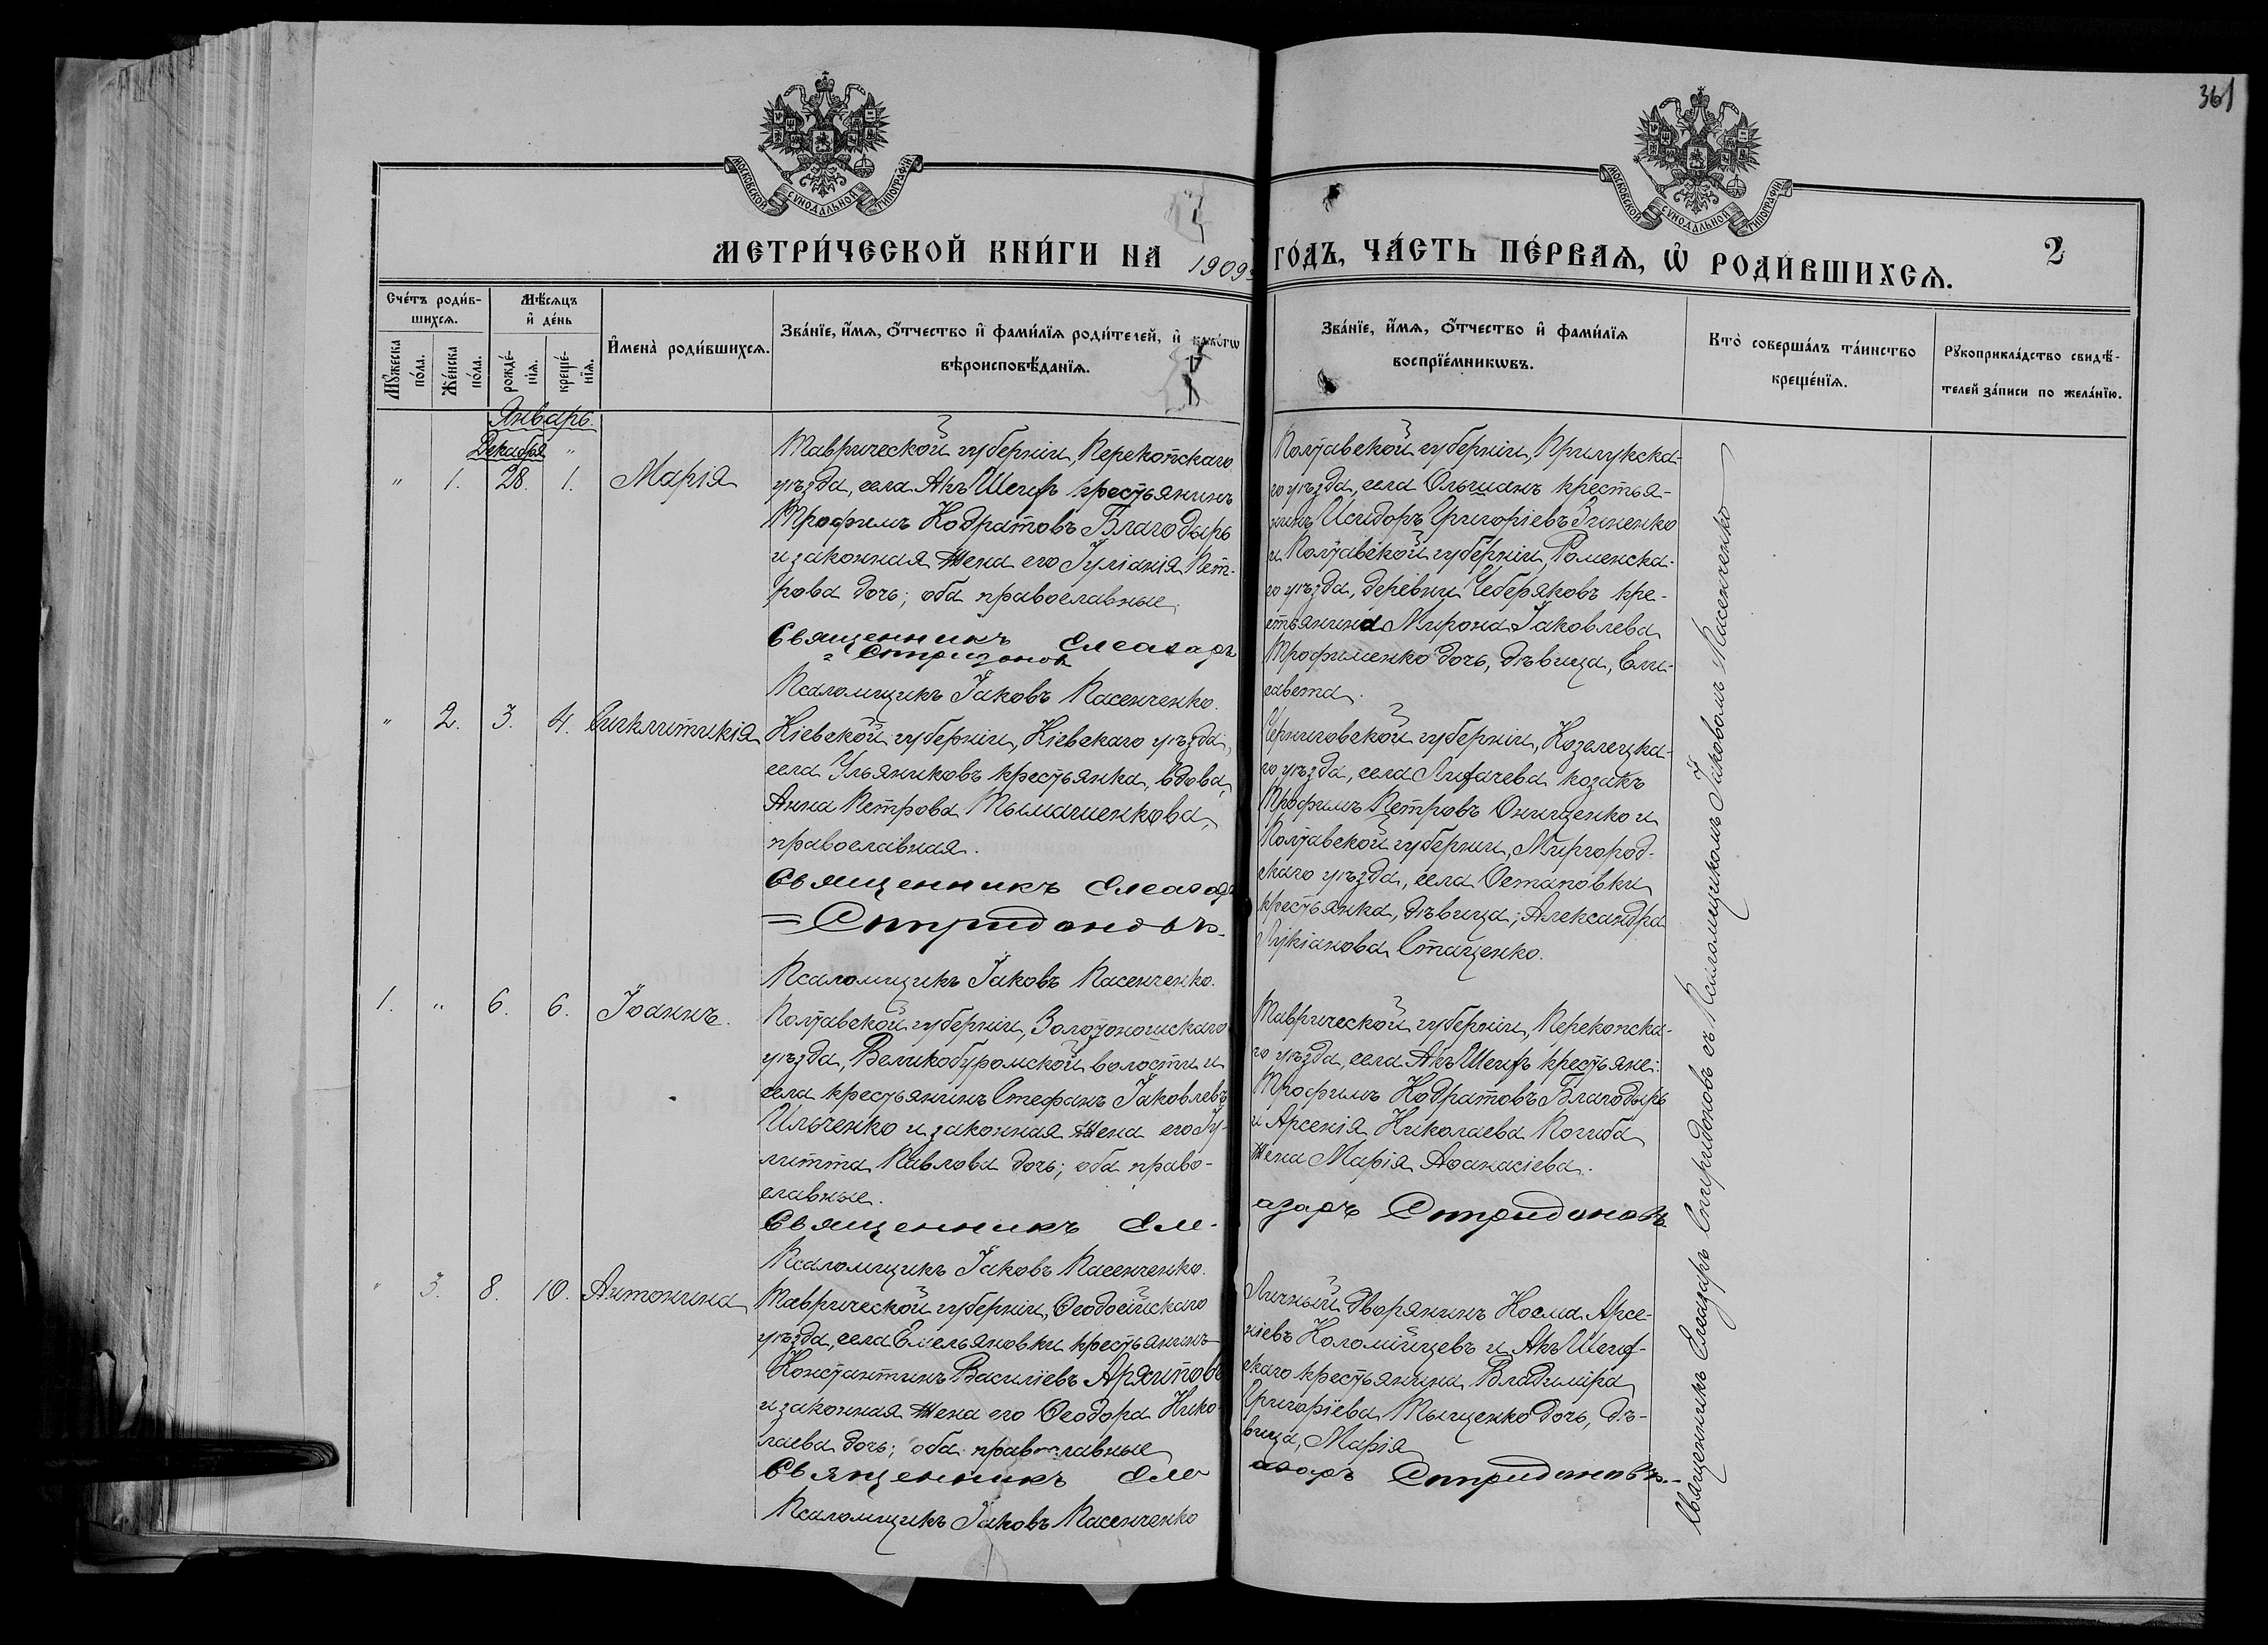 361
МОСКОВСКОЙ СѴНОДАЛЬНОЙ ТИПОГРАФІИ
МОСКОВСКОЙ СѴНОДАЛЬНОЙ ТИПОГРАФІИ
МЕТРИ́ЧЕСКОЙ КНИ́ГИ НА 1909 ГО́ДЪ, ЧА́СТЬ ПЕ́РВАѦ, Ѡ҆ РОДИ́ВШИХСѦ.
2
Сче́тъ роди́в-
шихсѧ.
Мꙋ́жеска по́ла.
Же́нска по́ла.
Мѣ́сѧцъ
и҆ де́нь
рожде́-
нїѧ.
креще́-
нїѧ.
И҆мена̀ роди́вшихсѧ.
Зва́нїе, и҆́мѧ, ѻ҆́тчество и҆ фами́лїѧ роди́телей, и҆ како́гѡ
вѣроисповѣ́данїѧ.
Зва́нїе, и҆́мѧ, ѻ҆́тчество и҆ фами́лїѧ
воспрїе́мникѡвъ.
Кто̀ соверша́лъ та́инство
креще́нїѧ.
Рꙋкоприкла́дство свидѣ́-
телей за́писи по жела́нїю.
Январь.
Декабря "
" 1. 28. 1. Марія
Таврической губерніи, Перекопскаго
уѣзда, села Акъ Шеихъ крестьянинъ
Трофимъ Кодратовъ Благодырь
и законная жена его Іуліанія Пет-
рова дочь; оба православные.
Священникъ Елеазаръ
= Спиридоновъ
Псаломщикъ Іаковъ Пасенченко.
Полтавской губерніи, Прилукска-
го уѣзда, села Ольшанъ крестья-
нинъ Исидоръ Григоріевъ Зиненко
и Полтавской губерніи, Роменска-
го уѣзда, деревни Чеберяковъ кре-
стьянина Мирона Іаковлева
Трофименко дочь, дѣвица, Ели-
савета.
" 2. 3. 4. Синклитикія
Кіевской губерніи, Кіевскаго уѣзда,
села Ульяниковъ крестьянка, вдова,
Анна Петрова
православная.
Священникъ Елеазаръ
= Спиридоновъ.
Псаломщикъ Іаковъ Пасенченко.
Черниговской губерніи, Козелецка-
го уѣзда, села Лихачева козакъ
Трофимъ Петровъ Онищенко и
Полтавской губерніи, Миргород-
скаго уѣзда, села Остаповки
крестьянка, дѣвица, Александра
Лукіанова Стаценко.
1. " 6. 6. Іоаннъ.
Полтавской губерніи, Золотоношскаго
уѣзда, Великобуромской волости и
села крестьянинъ Стефанъ Іаковлевъ
Ильченко и законная жена его Іу-
литта Павлова дочь; оба право-
славные.
Священникъ Еле-
Псаломщикъ Іаковъ Пасенченко.
Таврической губерніи, Перекопска-
го уѣзда, села Акъ Шеихъ крестьяне:
Трофимъ Кодратовъ Благодырь
и Арсенія Николаева Погиба
жена Марія Аѳанасіева.
азаръ Спиридоновъ
" 3. 8. 10. Антонина
Таврической губерніи, Ѳеодосійскаго
уѣзда, села Емельяновки крестьянинъ
Константинъ Василіевъ Архиповъ
и законная жена его Ѳеодора Нико-
лаева дочь; оба православные
Священникъ Еле
Псаломщикъ Іаковъ Пасенченко
Личный дворянинъ Косма Арсе-
ніевъ Коломійцевъ и Акъ Шеих-
скаго крестьянина Владиміра
Григоріева Тыщенко дочь, дѣ-
вица, Марія
азаръ Спиридоновъ.
Священникъ Елеазаръ Спиридоновъ съ Псаломщикомъ Іаковомъ Пасенченко